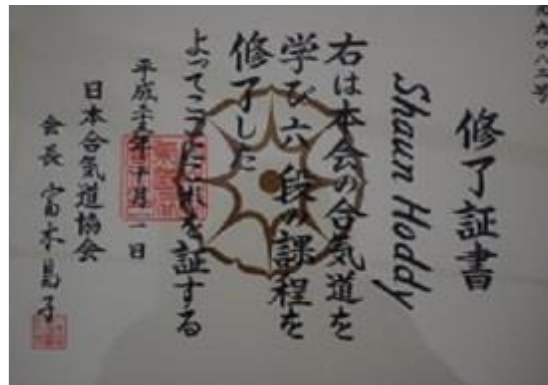 修了証書
Shaun Hoddy
右は本会の合気道を
学び六段の課程を
修了した
よってここに之を証する
平成 年十月 日
日本合気道協会
会長 富木 子